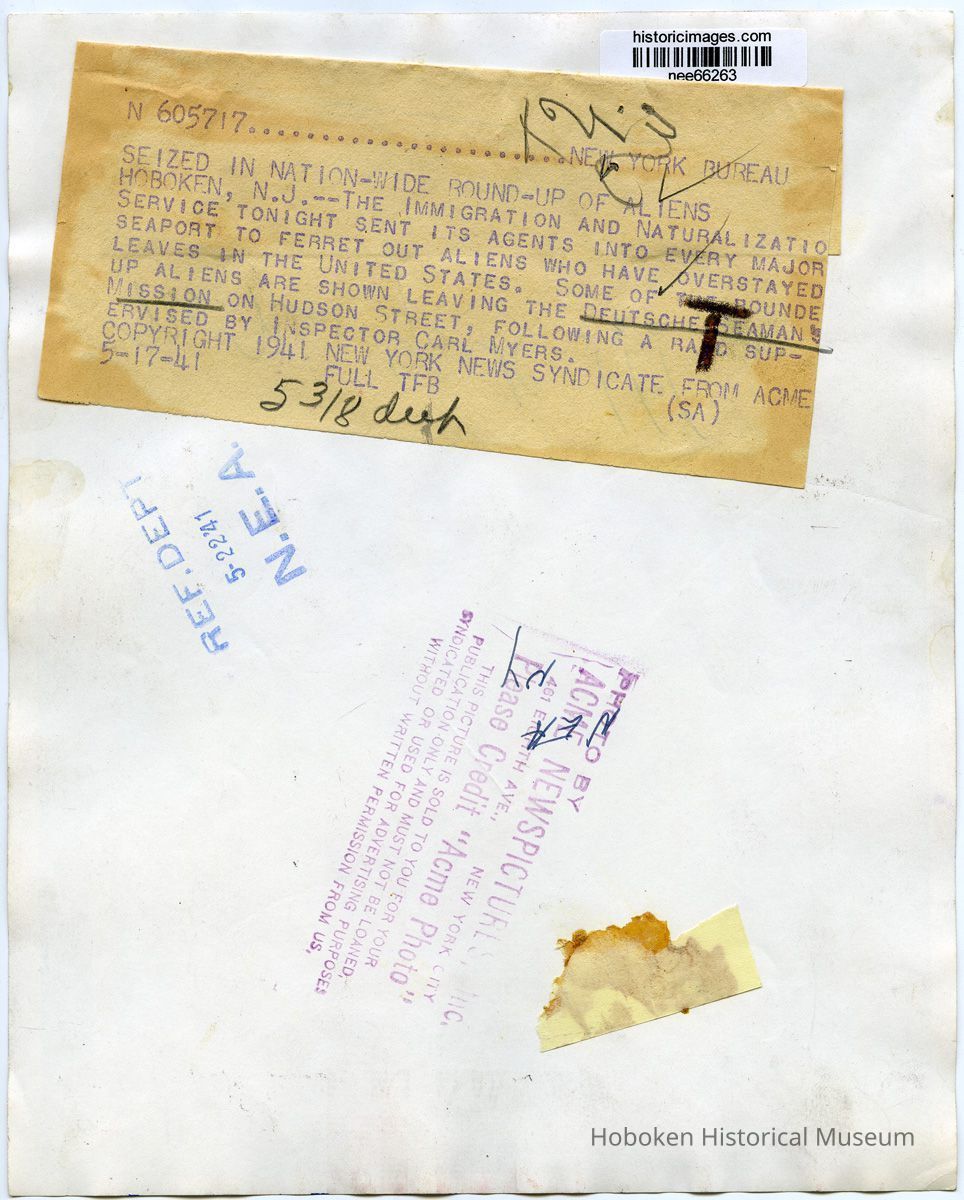 historicimages.com
nee66263
N 605717..............................NEW YORK BUREAU
SEIZED IN NATION-WIDE ROUND-UP OF ALIENS
HOBOKEN, N.J.--THE IMMIGRATION AND NATURALIZATIO
SERVICE TONIGHT SENT ITS AGENTS INTO EVERY MAJOR
SEAPORT TO FERRET OUT ALIENS WHO HAVE OVERSTAYED
LEAVES IN THE UNITED STATES. SOME OF THE ROUNDE
UP ALIENS ARE SHOWN LEAVING THE DEUTSCHE SEAMAN'S
MISSION ON HUDSON STREET, FOLLOWING A RAID SUP-
ERVISED BY INSPECTOR CARL MYERS.
COPYRIGHT 1941 NEW YORK NEWS SYNDICATE FROM ACME
5-17-41 FULL TFB (SA)
T
5 3/8 deep
REF. DEPT
5-22 41
N.E.A.
PHOTO BY
ACME NEWSPICTURES, INC.
461 EIGHTH AVE., NEW YORK CITY
Please Credit "Acme Photo"
THIS PICTURE IS SOLD TO YOU FOR YOUR
PUBLICATION ONLY AND MUST NOT BE LOANED,
SYNDICATED OR USED FOR ADVERTISING PURPOSES
WITHOUT WRITTEN PERMISSION FROM US,
NEA
Hoboken Historical Museum